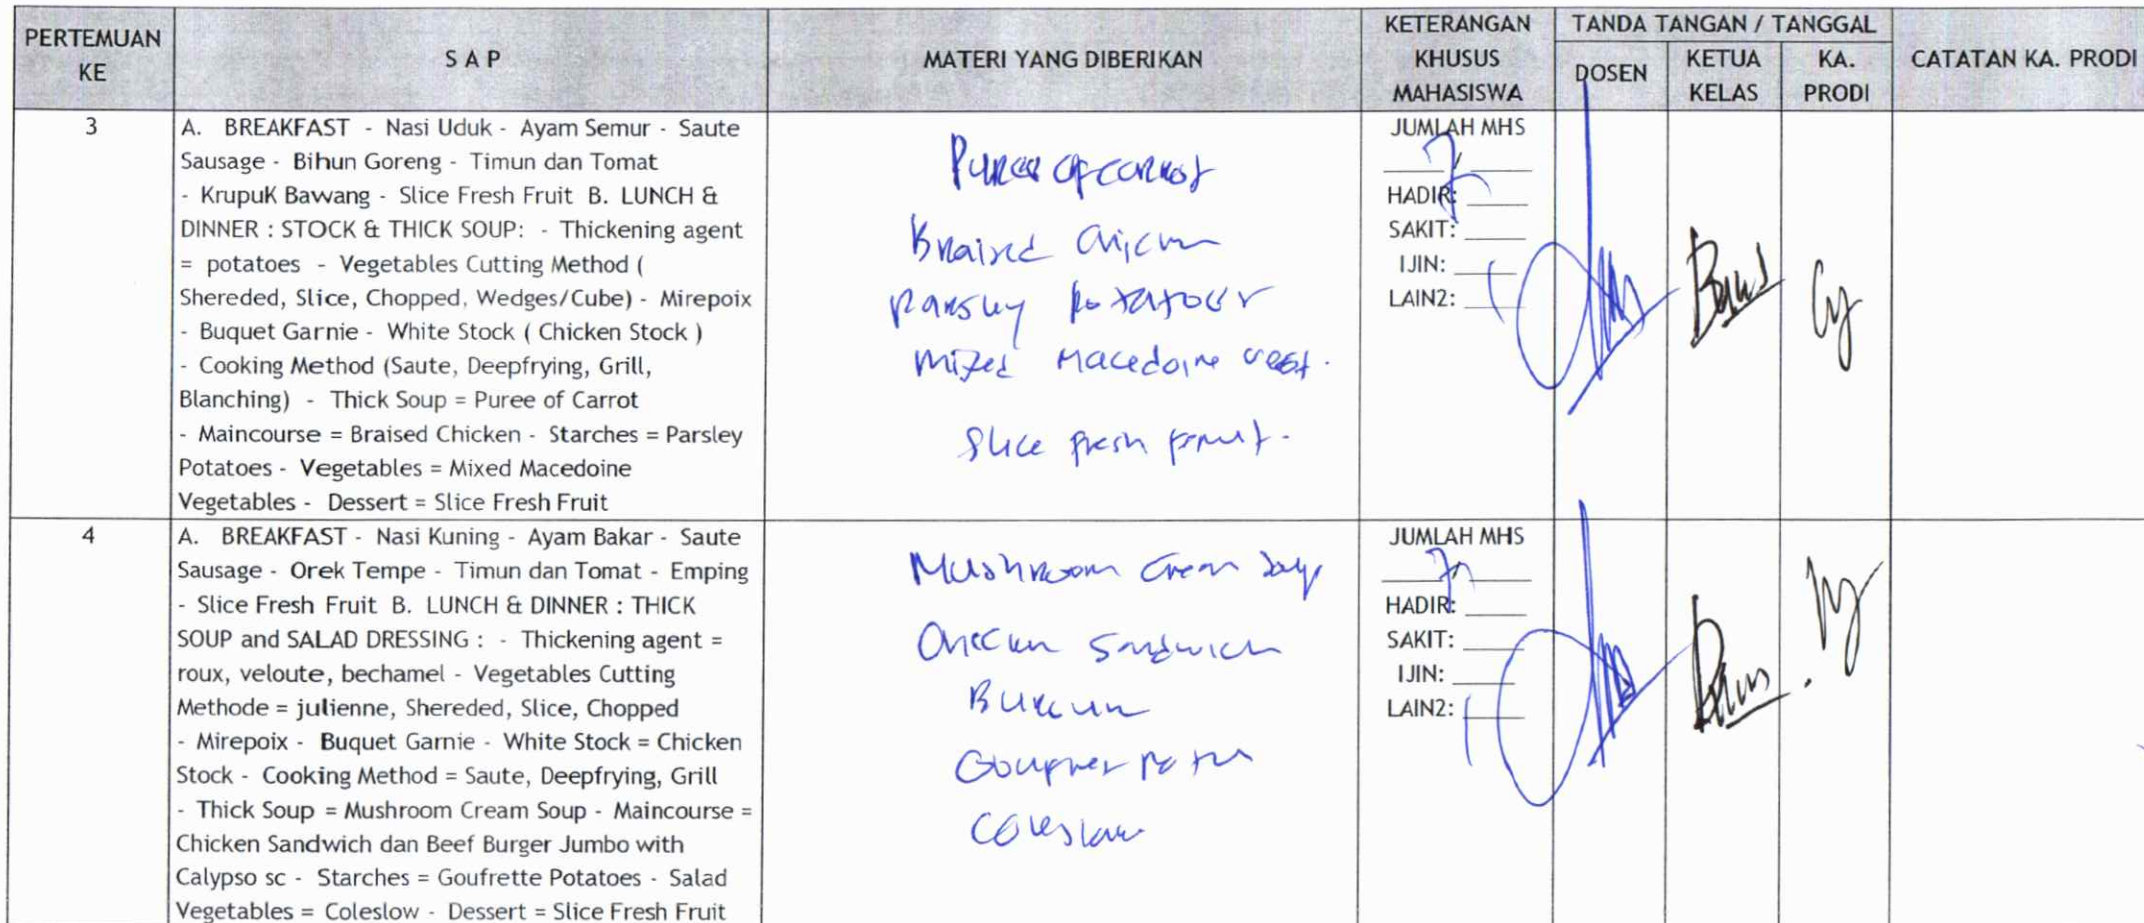 PERTEMUAN KE
S A P
MATERI YANG DIBERIKAN
KETERANGAN KHUSUS MAHASISWA
TANDA TANGAN / TANGGAL
DOSEN
KETUA KELAS
KA. PRODI
CATATAN KA. PRODI
3
A. BREAKFAST - Nasi Uduk - Ayam Semur - Saute
Sausage - Bihun Goreng - Timun dan Tomat
- KrupuK Bawang - Slice Fresh Fruit B. LUNCH &
DINNER : STOCK & THICK SOUP: - Thickening agent
= potatoes - Vegetables Cutting Method (
Shereded, Slice, Chopped, Wedges/Cube) - Mirepoix
- Buquet Garnie - White Stock ( Chicken Stock )
- Cooking Method (Saute, Deepfrying, Grill,
Blanching) - Thick Soup = Puree of Carrot
- Maincourse = Braised Chicken - Starches = Parsley
Potatoes - Vegetables = Mixed Macedoine
Vegetables - Dessert = Slice Fresh Fruit
Puree of carrot
Braised Chicken
Parsley potatoes
Mixed Macedoine
Slice fresh fruit.
JUMLAH MHS
HADIR:
SAKIT:
IJIN:
LAIN2:
4
A. BREAKFAST - Nasi Kuning - Ayam Bakar - Saute
Sausage - Orek Tempe - Timun dan Tomat - Emping
- Slice Fresh Fruit B. LUNCH & DINNER : THICK
SOUP and SALAD DRESSING : - Thickening agent =
roux, veloute, bechamel - Vegetables Cutting
Methode = julienne, Shereded, Slice, Chopped
- Mirepoix - Buquet Garnie - White Stock = Chicken
Stock - Cooking Method = Saute, Deepfrying, Grill
- Thick Soup = Mushroom Cream Soup - Maincourse =
Chicken Sandwich dan Beef Burger Jumbo with
Calypso sc - Starches = Goufrette Potatoes - Salad
Vegetables = Coleslow - Dessert = Slice Fresh Fruit
Mushroom Cream Soup
Chicken Sandwich
Coleslaw
JUMLAH MHS
HADIR:
SAKIT:
IJIN:
LAIN2: